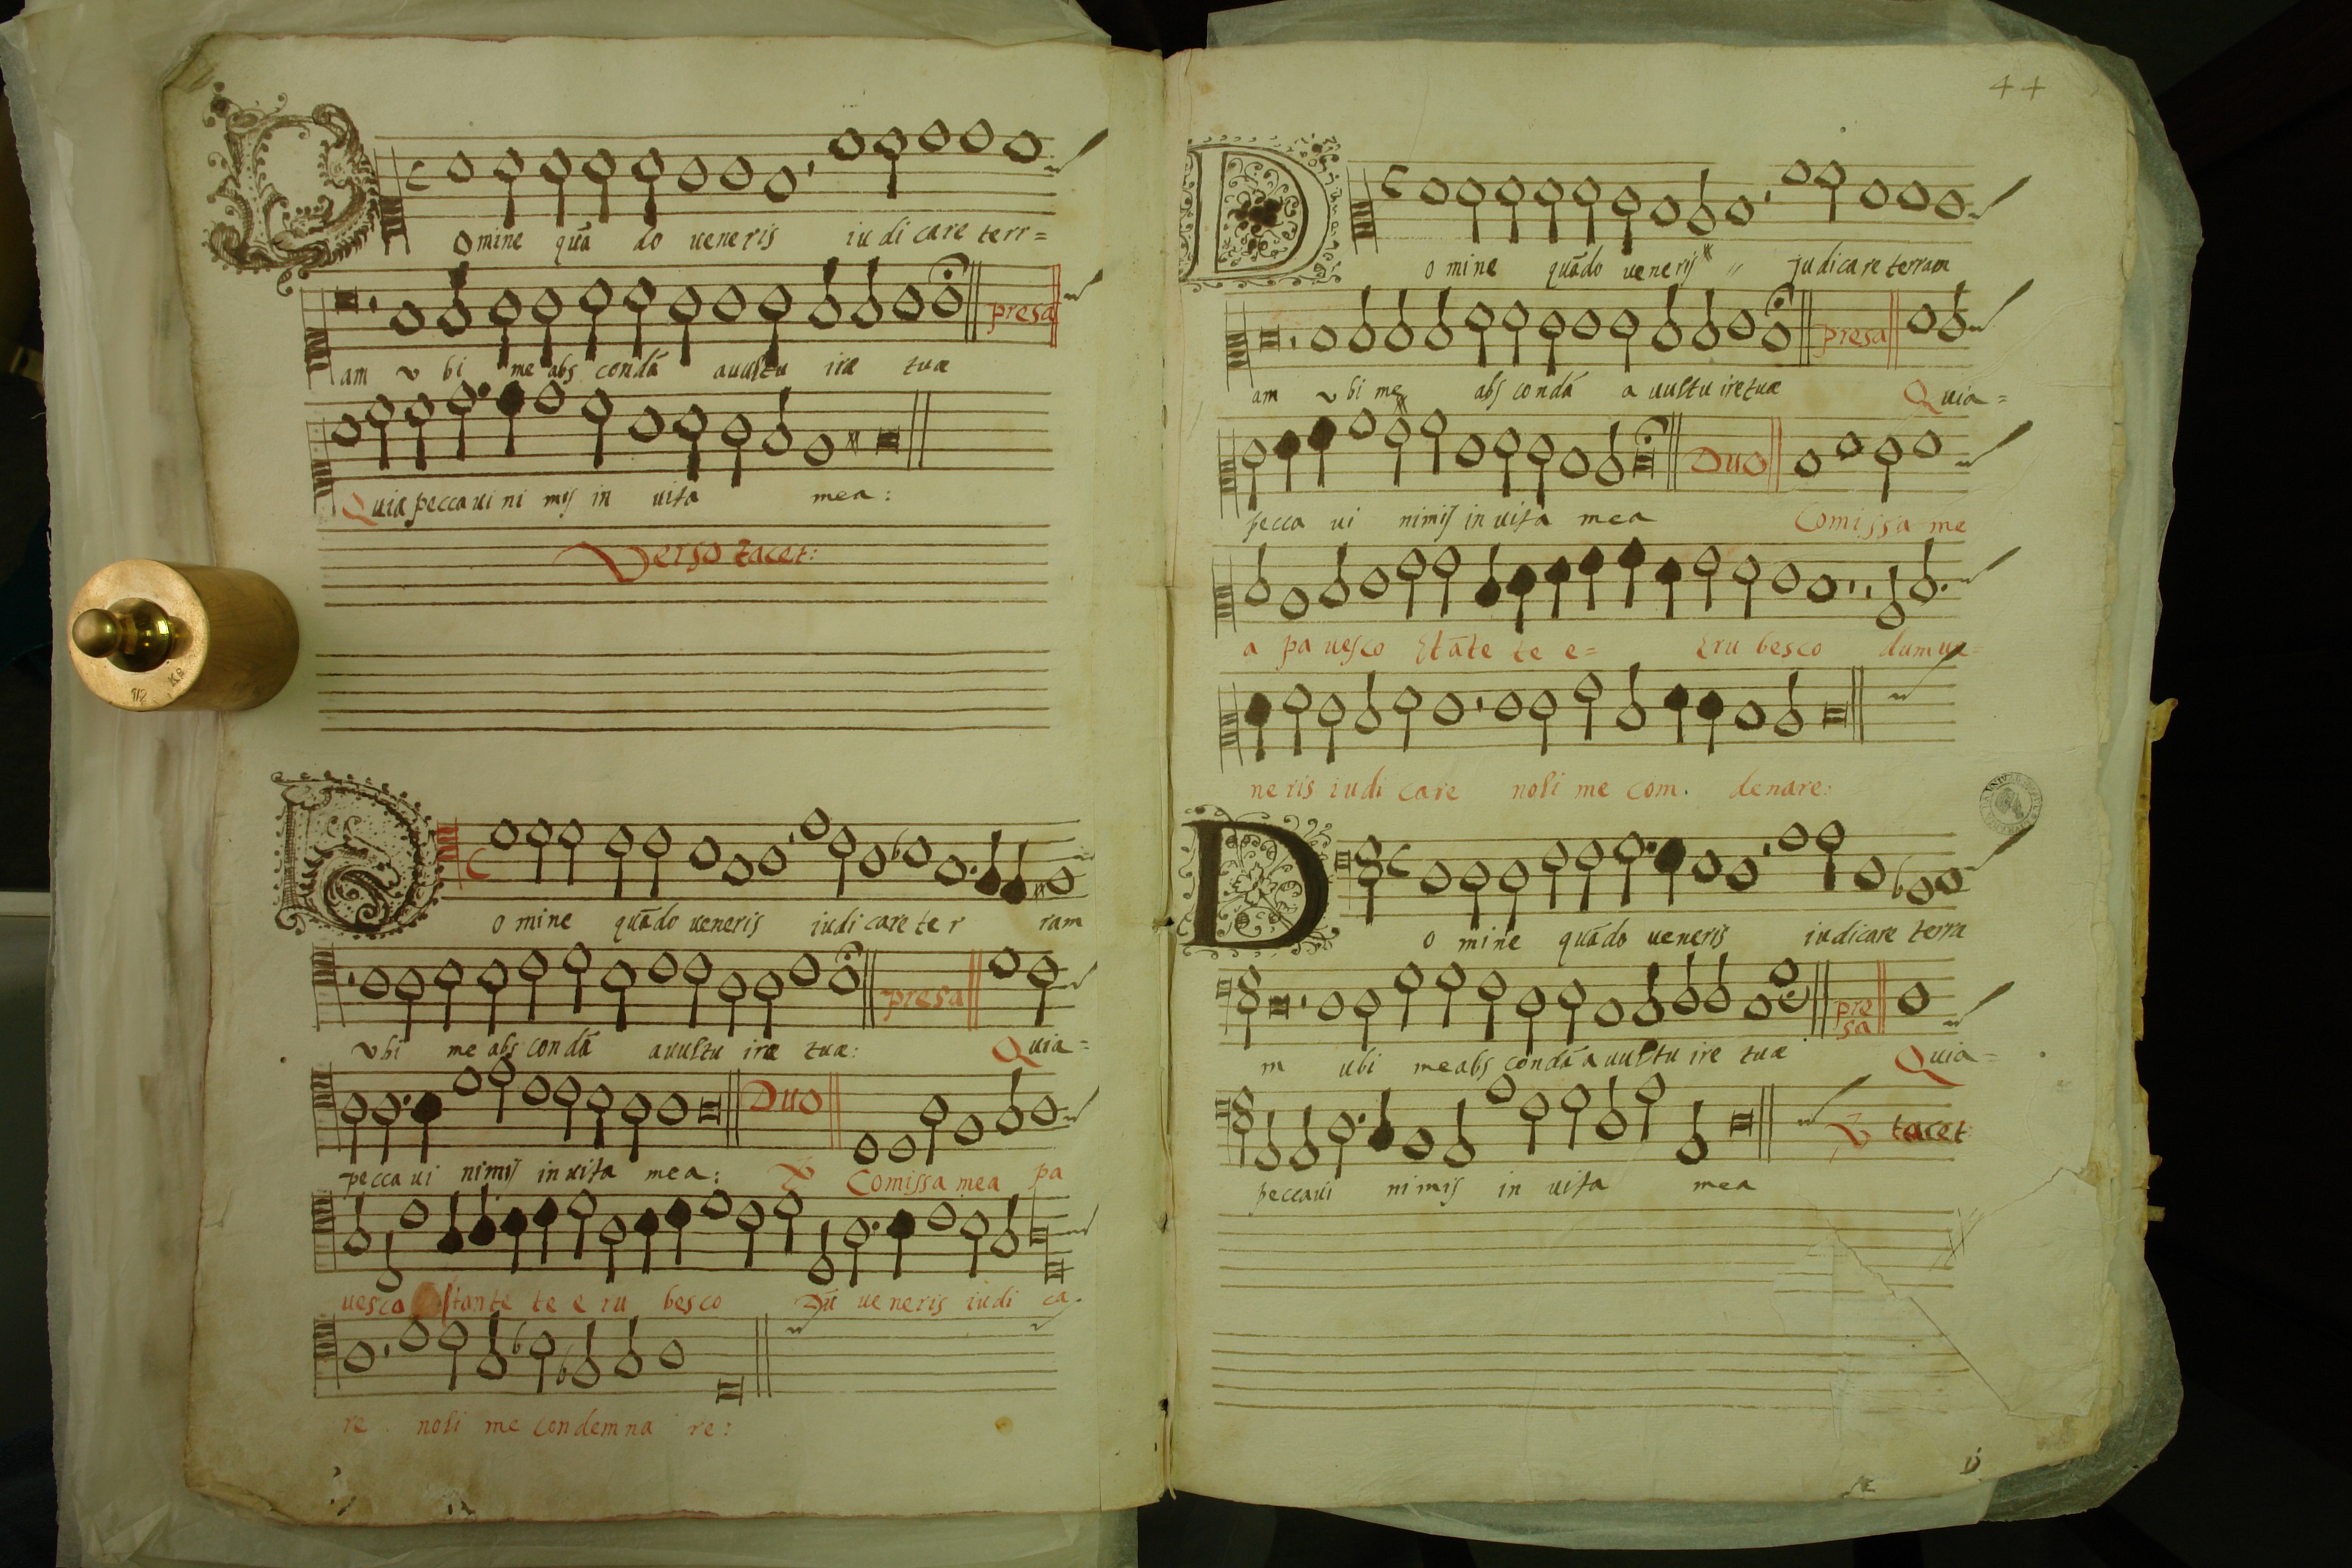 Domine quā do ueneris iudicare terr=
am vbi me abs condā auultu iræ tuæ presa
Quia peccaui ni mis in uita mea:
Verso tacet:
Domine quādo ueneris iudicare ter ram
vbi me abs condā auultu iræ tuæ: presa Quia=
peccaui nimis in uita mea: Duo Comissa mea pa
uesco stante te e ru besco Dū ueneris iudi ca.
re noli me condemna re:
44
Domine quādo ueneris " judicare terram
am vbi me abs condā a uultu ire tuæ presa Quia=
pecca ui nimis in uita mea Duo Comissa me
a pa uesco Et āte te e= Eru besco dum ue=
neris iudi care noli me com. denare:
Domine quādo ueneris iudicare terra
m ubi me abs condā a uultu ire tuæ presa Quia=
peccaui nimis in uita mea tacet